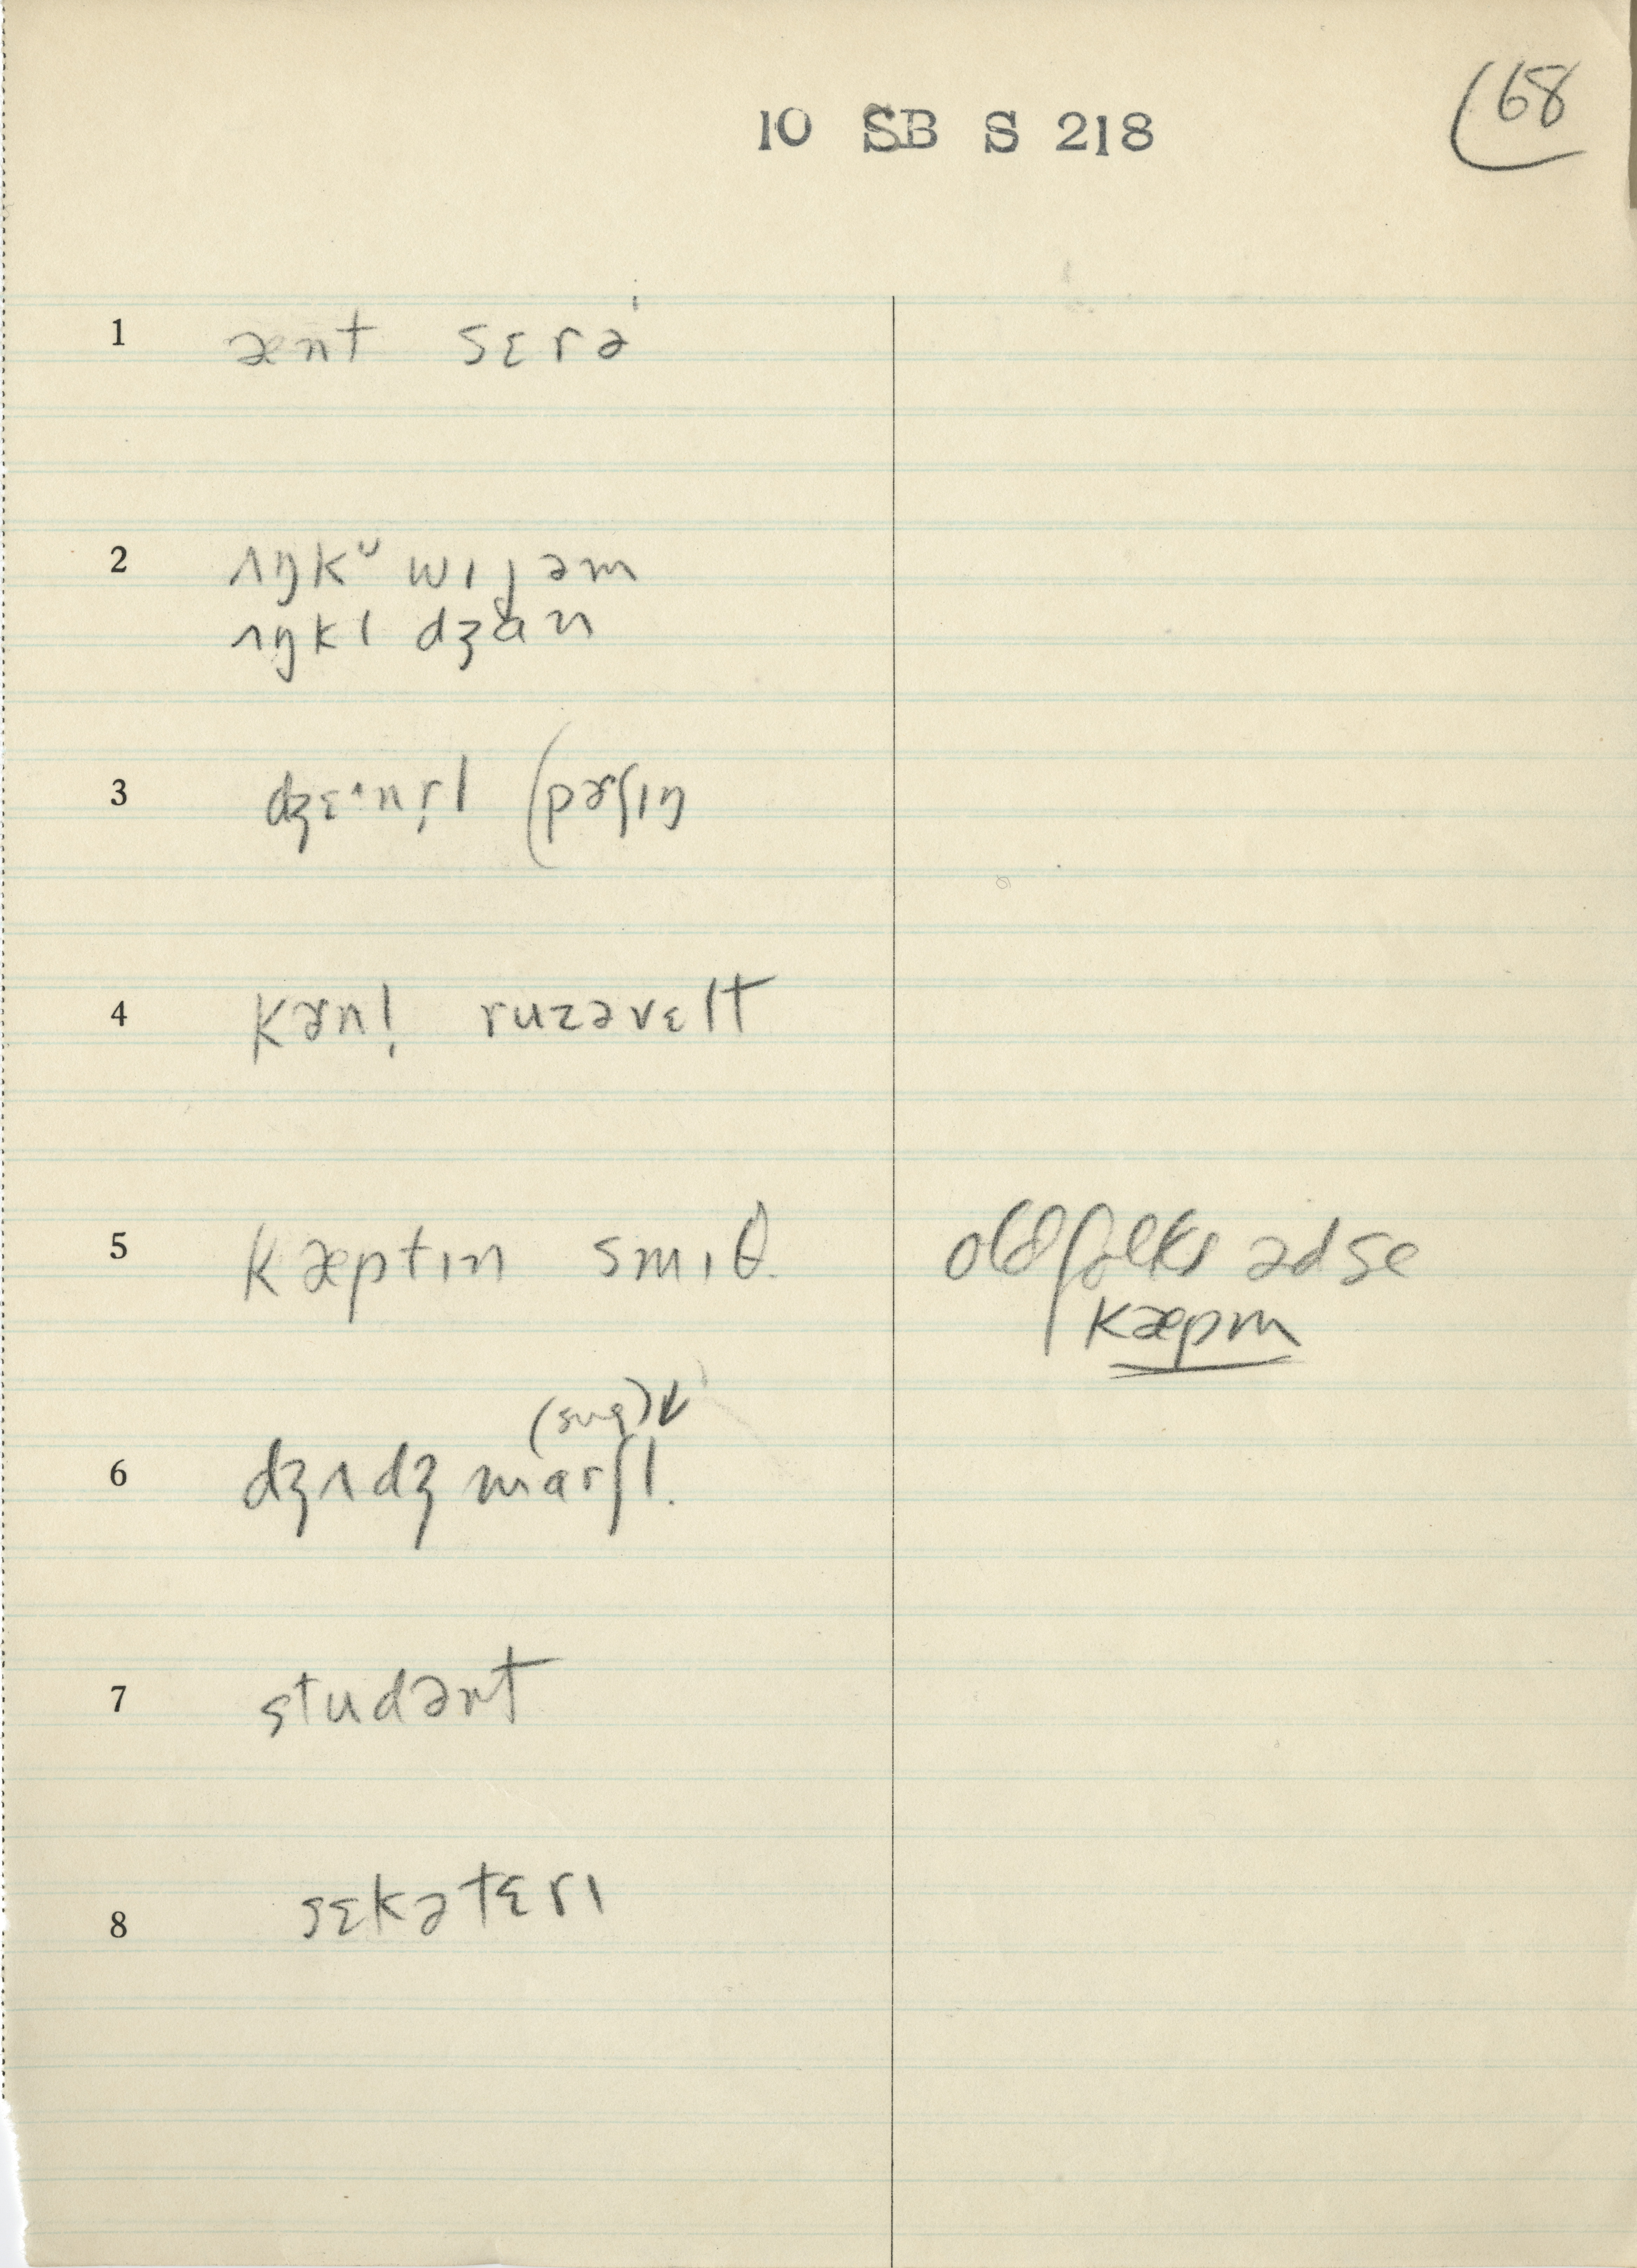 10 SB S 218
68
1 ænt sɛrə
2 ʌŋkᵁ wɪjəm
ʌŋkl dʒɑn
3 dʒɛˑnr̩l (pɚʃɪŋ
4 kɚnl̩ ruzəvɛlt
5 kæptɪn smɪθ
old folks ədse
kæpm
6 (sug)↓
dʒʌdʒ marʃl
7 studənt
8 sɛkətɛrɪ